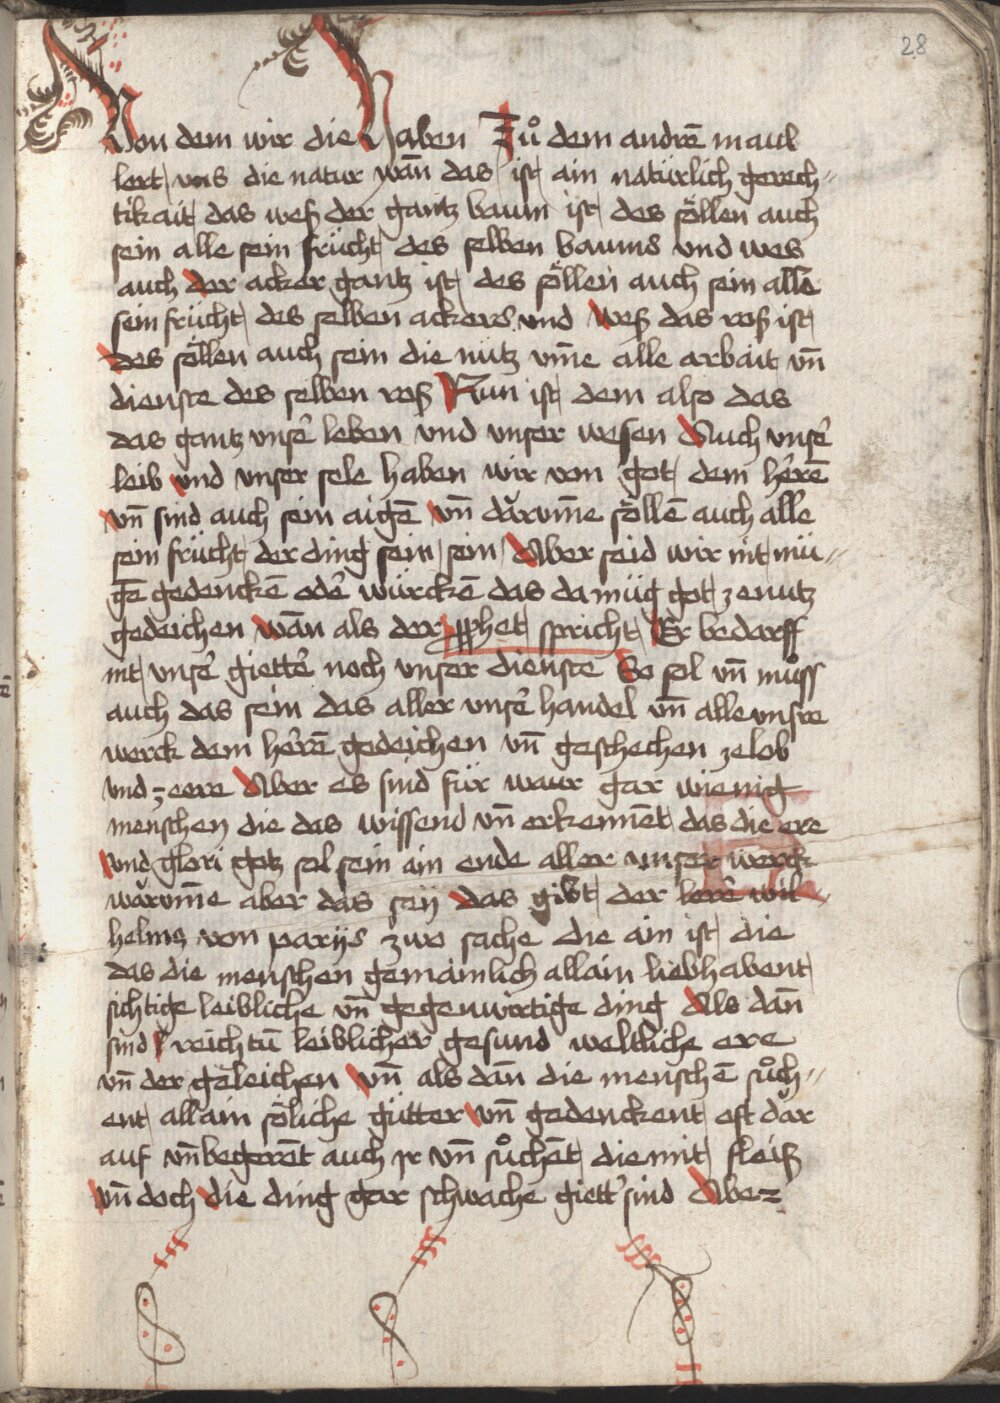 28
Von dem wir die Haben Zů dem andrē maul
lert vns die natur wān das ist ain natürlich gerech-
tikait das weß der gantz baum ist des söllen auch
sein alle sein frücht des selben baums vnd wes
auch der acker gantz ist des söllen auch sein alle
sein frücht des selben ackers vnd weß das roß ist
des söllen auch sein die nutz vm̄e alle arbait vn̄
dienste des selben roß Nun ist dem also das
das gantz vnser̄ leben vnd vnser wesen Auch vnser̄
leib vnd vnser sele haben wir von got dem herrē
vn̄ sind auch sein aigē vn̄ dǎrvm̄e söllē auch alle
sein frücht der ding sein sein Aber seid wir nit mü-
gē gedenckē oder̄ würckē das da müg got ze nutz
gedeichen wān als der pphet spricht Er bedarff
nit vnser̄ gietter̄ noch vnser dienste So sol vn̄ můss
auch das sein das aller vnser̄ handel vn̄ alle vnsre
werck dem herrē gedeichen vn̄ geschechen ze lob
vnd z eere Aber es sind für waur gar wienig
menschen die das wissend vn̄ erkennēt das die ere
vnd glori gotz sol sein ain ende aller vnser werck
wǎrvm̄e aber das seÿ das gibt der lerer̄ wil-
helms von parÿs zwo sache die ain ist die
das die menschen gemainlich allain liebhabent
sichtige leibliche vn̄ gegenwirtige ding Als dān
sind reichtū leiblicher gesund weltliche ere
vn̄ der geleichen vn̄ als dān die menschē sůch-
ent allain söliche gütter vn̄ gedenckent oft dǎr
auf vn̄ begerēt auch ir vn̄ sůchēt die mit fleiß
vn̄ doch die ding gar schwache giett' sind Aber